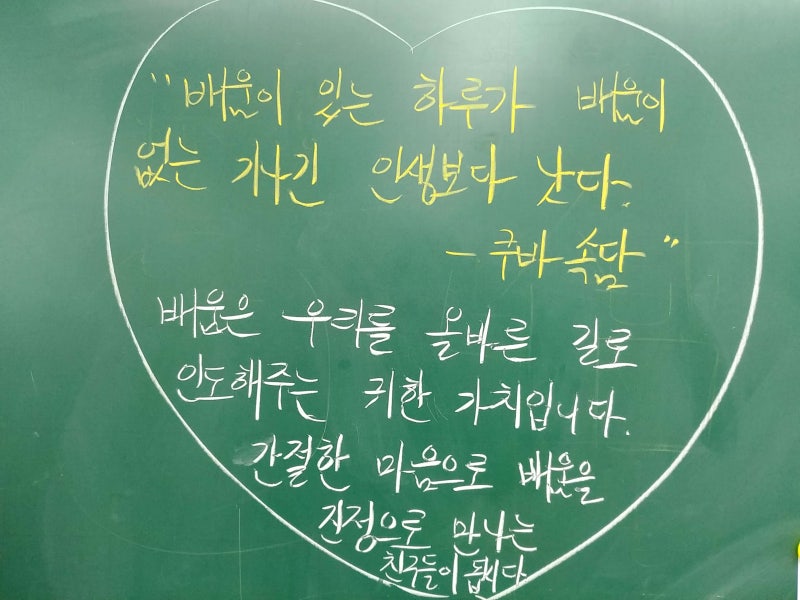 "배움이 있는 하루가 배움이
없는 기나긴 인생보다 낫다.
- 쿠바 속담"
배움은 우리를 올바른 길로
인도해주는 귀한 가치입니다.
간절한 마음으로 배움을
진정으로 만나는
친구들이 됩시다